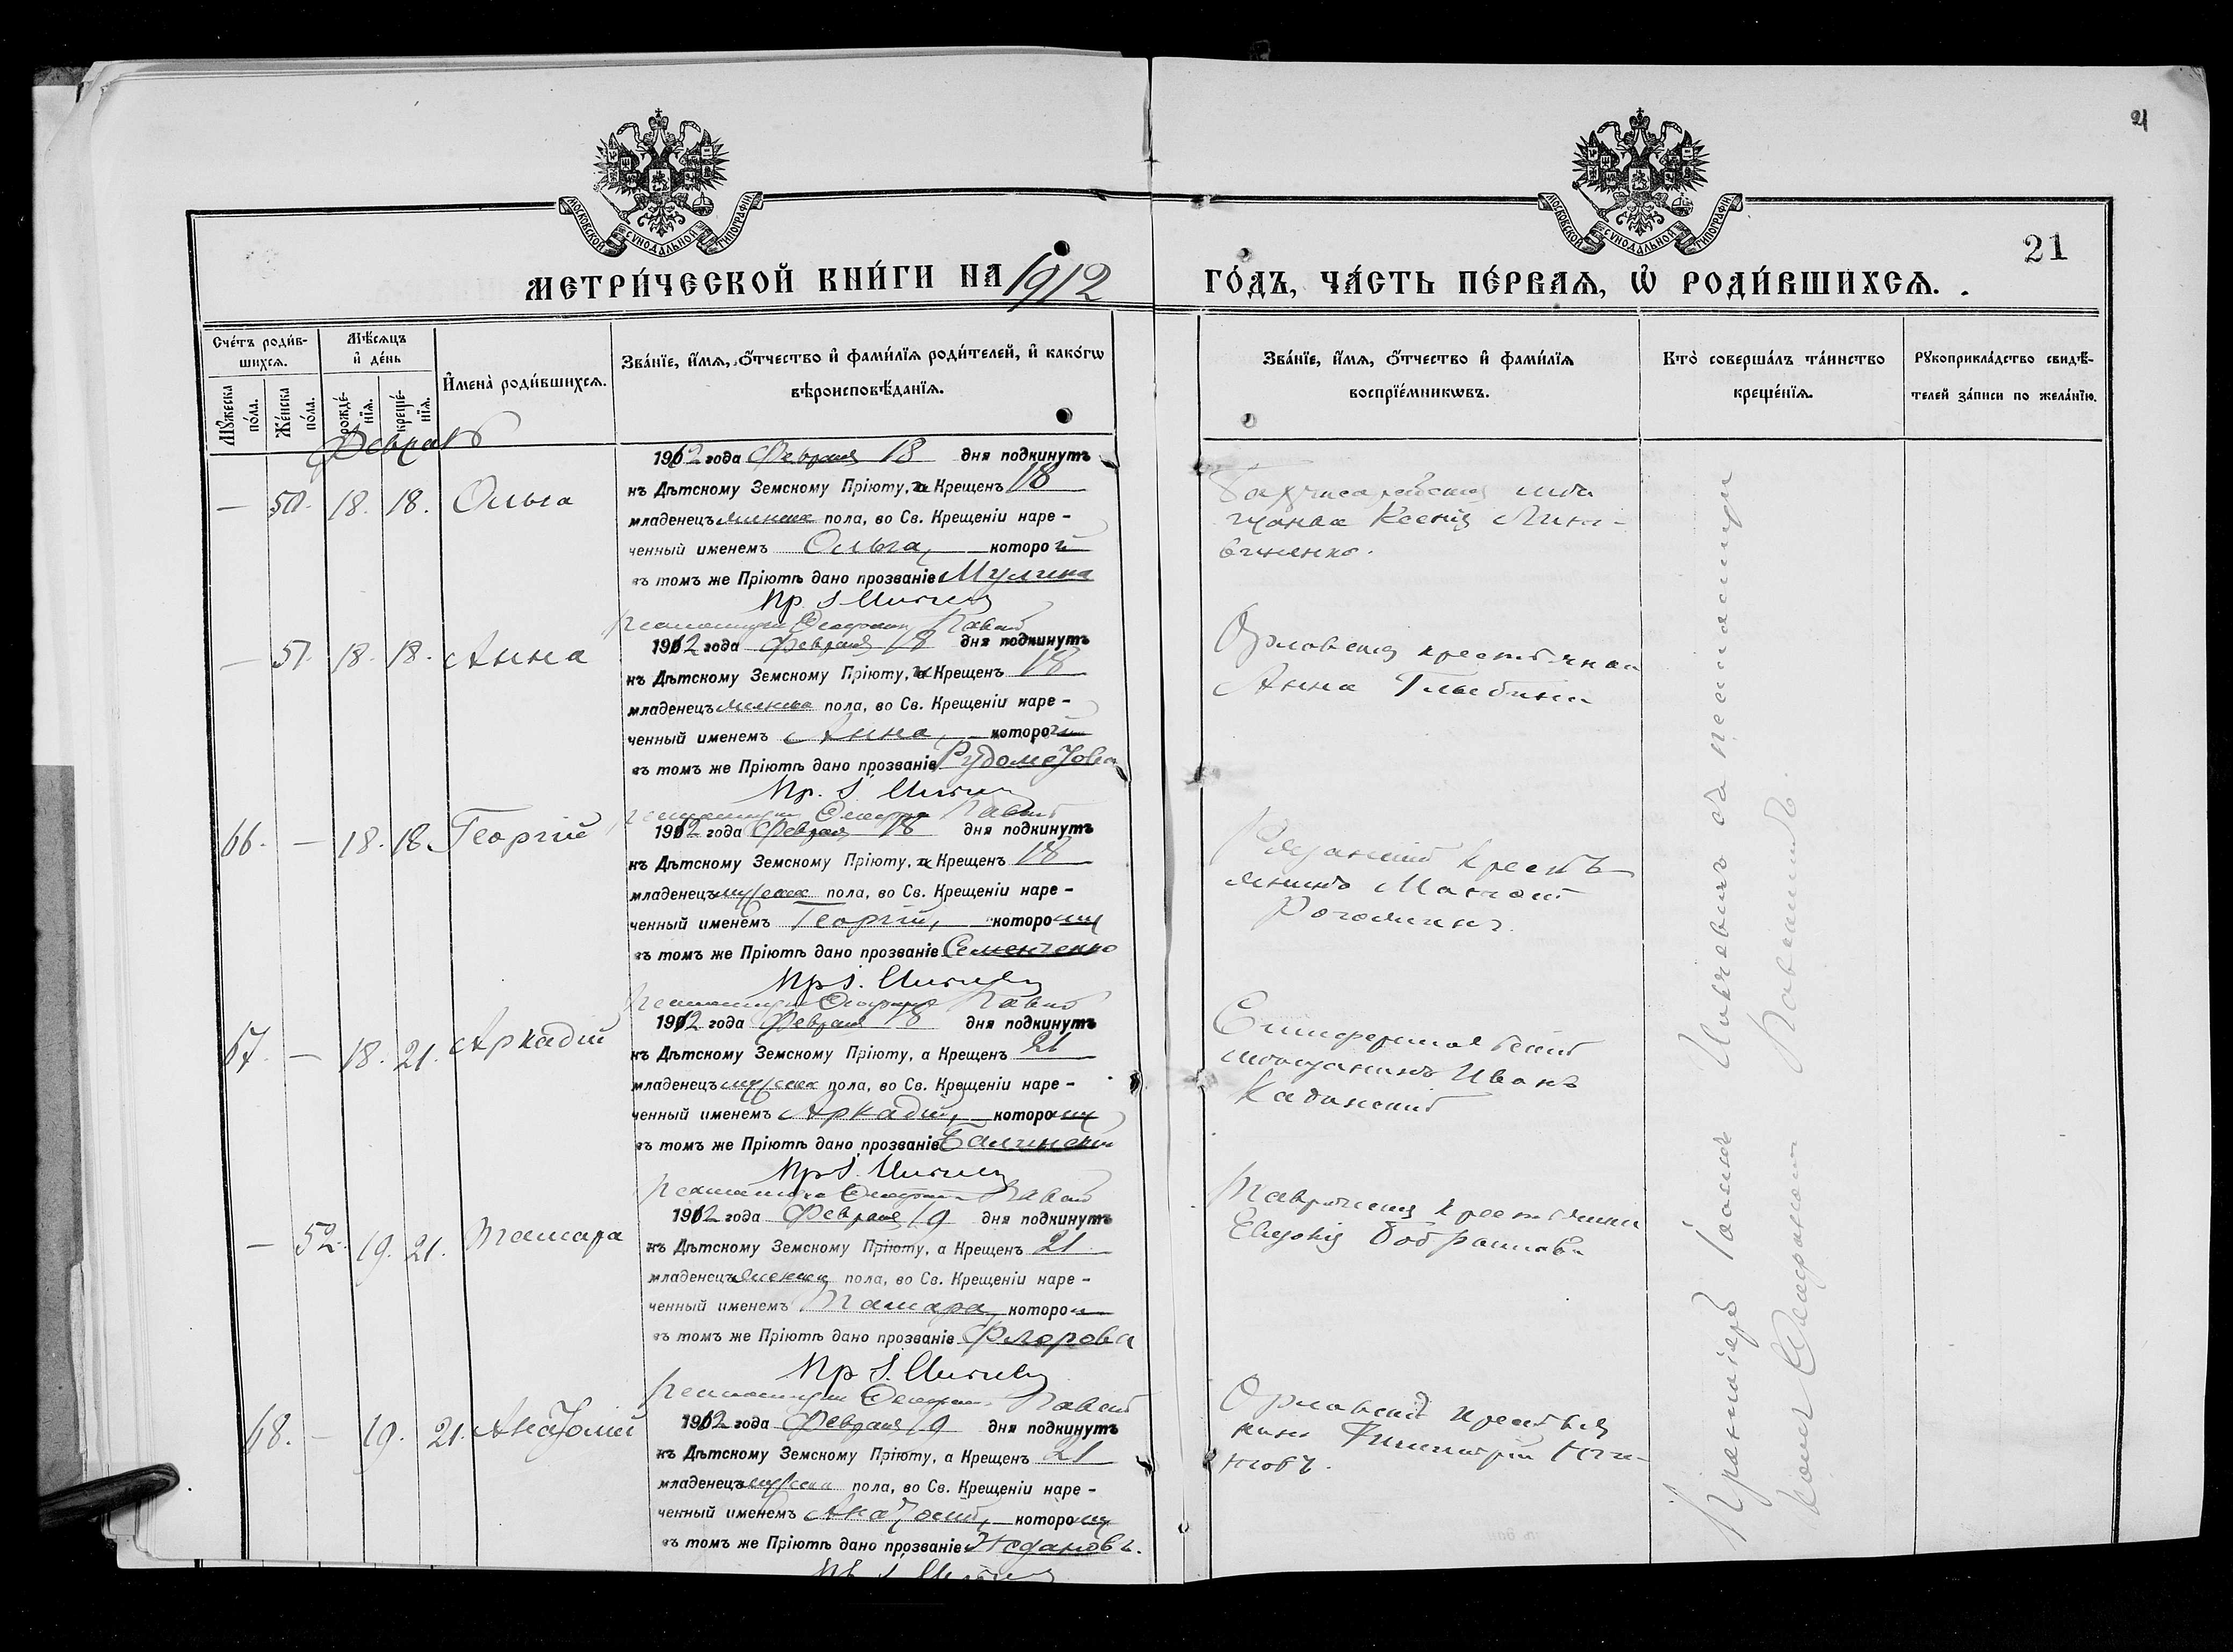 МОСКОВСКОЙ СУНОДАЛЬНОЙ ТИПОГРАФІИ
МОСКОВСКОЙ СУНОДАЛЬНОЙ ТИПОГРАФІИ
21
21
МЕТРИ́ЧЕСКОЙ КНИ́ГИ НА 1912
ГО́ДЪ, ЧА́СТЬ ПЕ́РВАЯ, Ѡ҆ РОДИ́ВШИХСЯ.
Сче́тъ роди́в-
шихся.
Мѣ́сяцъ
и҆ де́нь
Мꙋ́жеска
по́ла.
Же́нска
по́ла.
рожде́-
нїя.
креще́-
нїя.
И҆мена̀ роди́вшихся.
Зва́нїе, и҆́мя, ѻ҆́тчество и҆ фами́лїя роди́телей, и҆ како́гѡ
вѣроисповѣ́данїя.
Зва́нїе, и҆́мя, ѻ҆́тчество и҆ фами́лїя
воспрїе́мникѡвъ.
Кто̀ соверша́лъ та́инство
креще́нїя.
Рꙋкоприкла́дство свидѣ́-
телей за́писи по жела́нїю.
Февраль
— 50. 18. 18. Ольга
1912 года Февраля 18 дня подкинутъ
къ Дѣтскому Земскому Пріюту, а Крещенъ 18
младенецъ женска пола, во Св. Крещеніи наре-
ченный именемъ Ольга, которой
въ томъ же Пріютѣ дано прозваніе Мулина
Пр. І.
Бахчисарайская мѣ
щанка Ксенія
— 51. 18. 18. Анна
Павелъ
1912 года Февраля 18 дня подкинутъ
къ Дѣтскому Земскому Пріюту, а Крещенъ 18
младенецъ женска пола, во Св. Крещеніи наре-
ченный именемъ Анна, которой
въ томъ же Пріютѣ дано прозваніе Рудометова
Пр. І.
Орловская крестьянка
Анна
66. — 18. 18. Георгій
Павелъ
1912 года Февраля 18 дня подкинутъ
къ Дѣтскому Земскому Пріюту, а Крещенъ 18
младенецъ мужеска пола, во Св. Крещеніи наре-
ченный именемъ Георгій, которому
въ томъ же Пріютѣ дано прозваніе Семенченко
Пр І.
Рязанскій кресть
янинъ
67. — 18. 21. Аркадій
Павелъ
1912 года Февраля 18 дня подкинутъ
къ Дѣтскому Земскому Пріюту, а Крещенъ 21
младенецъ мужеска пола, во Св. Крещеніи наре-
ченный именемъ Аркадій, которому
въ томъ же Пріютѣ дано прозваніе
Пр І.
Симферопольскій
мѣщанинъ Иванъ
— 52. 19. 21. Тамара
Павелъ
1912 года Февраля 19 дня подкинутъ
къ Дѣтскому Земскому Пріюту, а Крещенъ 21
младенецъ женска пола, во Св. Крещеніи наре-
ченный именемъ Тамара, которой
въ томъ же Пріютѣ дано прозваніе Флорова
Пр І.
Таврическая крестьянка
Евдокія
68. — 19. 21. Анатолій
Павелъ
1912 года Февраля 19 дня подкинутъ
къ Дѣтскому Земскому Пріюту, а Крещенъ 21
младенецъ мужеска пола, во Св. Крещеніи наре-
ченный именемъ Анатолій, которому
въ томъ же Пріютѣ дано прозваніе Ждановъ.
Орловскій крестья
нинъ
Протоіерей Іоаннъ съ псаломщи
комъ